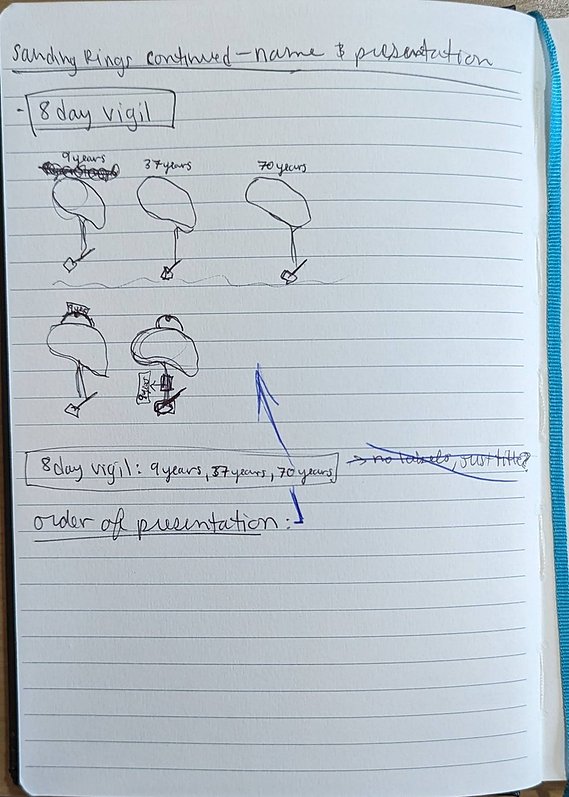 Sanding Rings continued - name & presentation
- 8 day vigil
9 years 37 years 70 years
9 years
9 years
8 day vigil: 9 years, 37 years, 70 years → no labels, just title?
order of presentation: